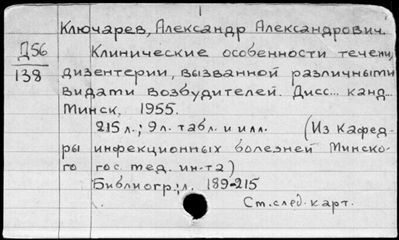 Ключарев, Александр Александрович.
Д56
138
Клинические особенности течения
дизентерии, вызванной различными
видами возбудителей. Дисс... канд...
Минск. 1955.
215 л.; 9 л. табл. и илл. (Из кафед-
ры инфекционных болезней Минско-
го гос. мед. ин-та)
Библиогр.: л. 189-215
См. след. карт.